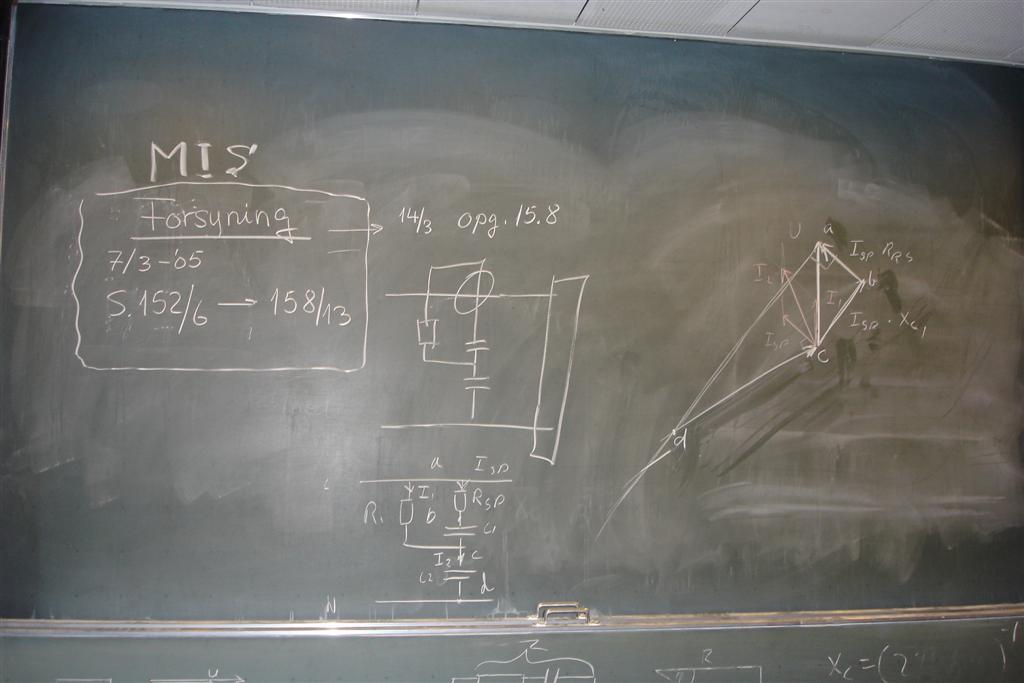 MIS
Forsyning
7/3-05
S.152/6 → 158/13
14/3 opg. 15.8
a I_SP
R₁ I₁ b R_SP
C₁
I₂ c
C2 d
N
U a
I_SP R_RS
I₂ b
I₁
I_SP · X_C₁
I_SP c
d
U
Z
R
X_C = (2
-1